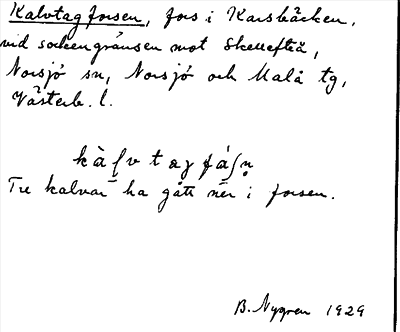 Kalvtagforsen, fors i Karsbäcken,
vid sockengränsen mot Skellefteå,
Norsjö sn, Norsjö och Malå tg,
Västerb. l.
Tre kalvar ha gått ner i forsen.
B. Nygren 1929